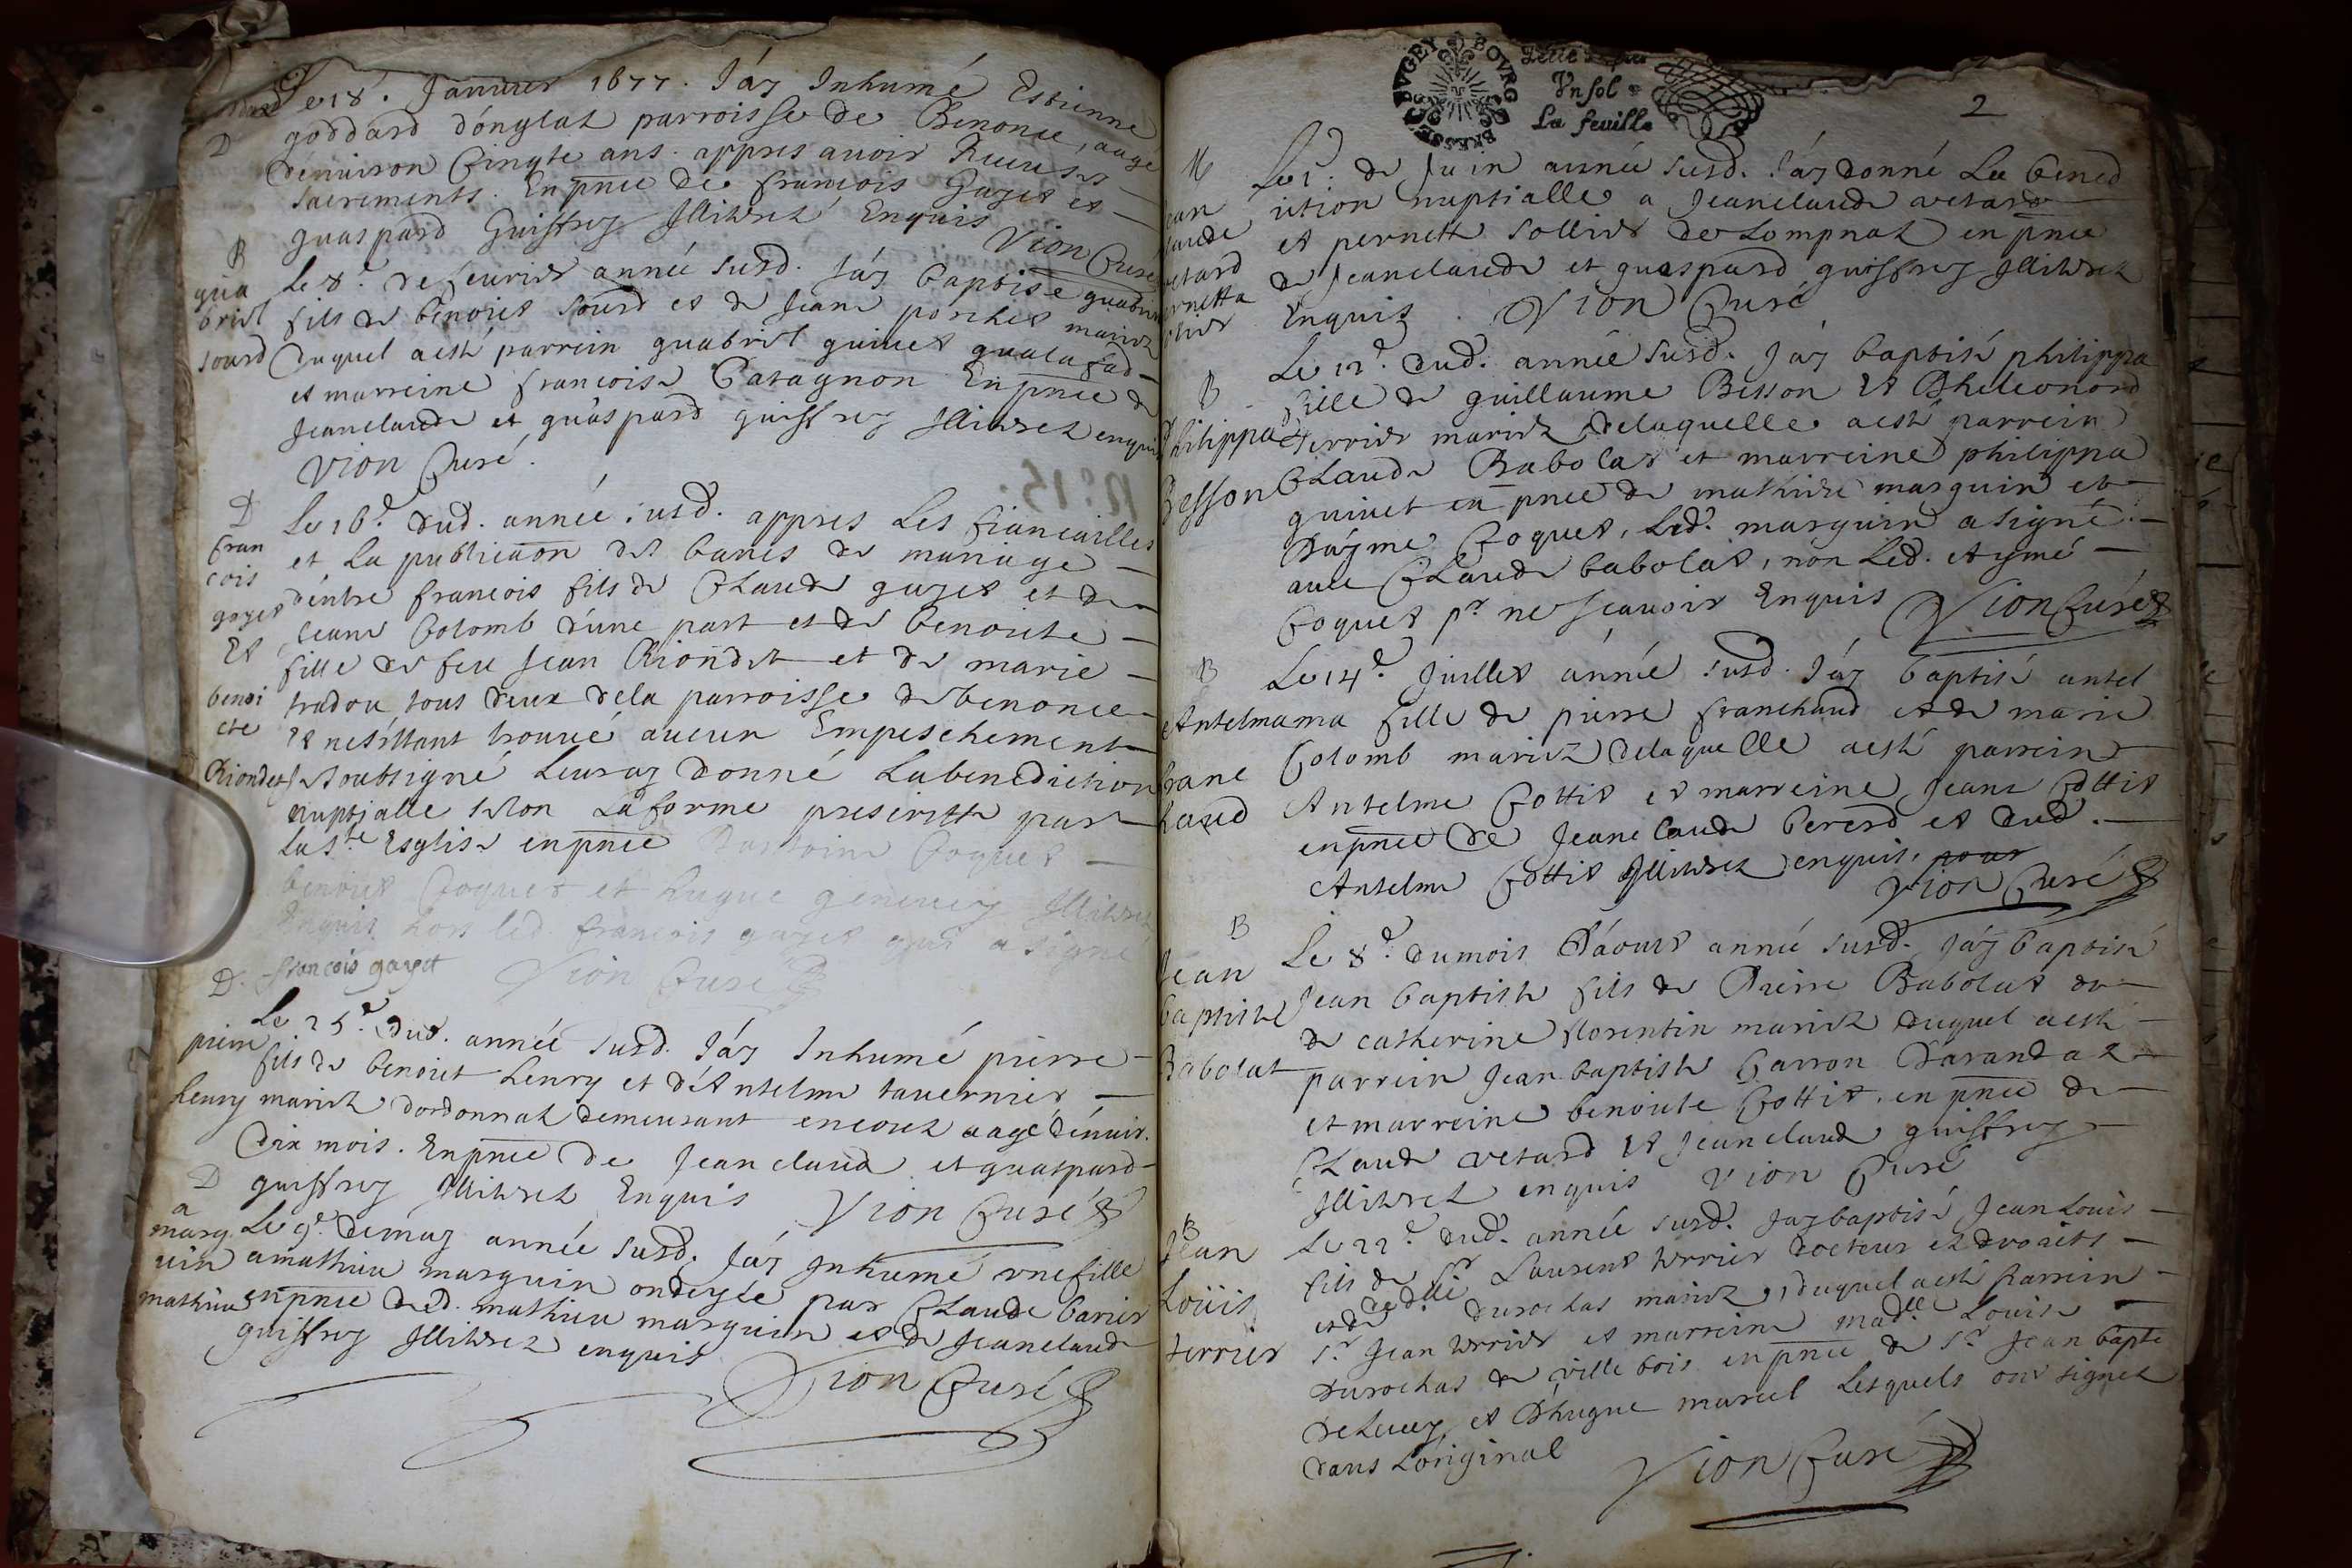 Le 18. Januier 1677. J'ay Inhumé Estienne
goddard d'onglat parroisse de Benonce, aagé
d'enuiron Cinqte ans. appres auoir Receu ses
sacrements. En pnce de francois Gayet et
guaspard Guiffrey Illiterez Enquis
Vion Curé
D
B
gua
briel
sourd
Le 8.e de feurier année susd. J'ay baptisé guabriel
fils de benoict sourd et de Jeane porchet mariez
Duquel a esté parrein guabriel guinet
et marreine francoise Caragnon En pnce de
Jeanclaude et guaspard guiffrey Illiterez enquis
Vion Curé.
D
fran
cois
gayet
Et
benoi
cte
Riondet
Le 16.e dud. année susd. appres Les fiancailles
et La publicaon des bancs de mariage
d'entre francois fils de Claude gayet et de
Jeane Colomb d'une part et de benoicte
fille de feu Jean Riondet et de marie
tradou tous deux de la parroisse de benonce
Et nes'estant trouué aucun Empeschement
Je soubsigné Leur ay donné La benediction
nuptialle selon La forme prescritte par
La s.te Esglise en pnce D'antoine Coquet
benoict Coquet et hugue geneuey Illiterez
Enquis hors led. francois gayet qui a signé
francois gayet Vion Curé
D.
pierre
henry
Le 25.e dud. année susd. J'ay Inhumé pierre
fils de benoict henry et d'Antelme tauernier
mariez d'ordonnat demeurant encore aagé d'enuir.
dix mois. En pnce de Jeanclaud et guaspard
guiffrey Illiterez Enquis Vion Curé
D
a
marg
uin
mathieu
Le 9.e de may année susd. J'ay Inhumé vne fille
a mathieu marguin ondeyée par Claude
en pnce dud. mathieu marguin et de Jeanclaude
guiffrey Illiterez enquis
Vion Curé
BOVRG BRESSE BVGEY
Vn sol
La feuille
2
M
Jean
claude
vetard
pernetta
sollier
Le 1.e de Juin année susd. J'ay donné La bened
iction nuptialle a Jeanclaude vetard
et pernette sollier de Lompnaz en pnce
de Jeanclaude et guaspard guiffrey Illiterez
Enquis. Vion Curé
B
Philippa
Besson
Le 12.e dud. année susd. J'ay baptisé philippa
fille de guillaume Besson Et D'heleonord
Terrier mariez delaquelle a esté parrein
Claude Babolat et marreine philippa
guinet en pnce de mathieu marguin et
D'aymé Coquet, Led. marguin a signé
auec Claude babolat, non Led. Aymé
Coquet pr ne scauoir Enquis Vion Curé
B
Antelma
franc
haud
Le 14.e Juillet année susd. J'ay baptisé antel
ma fille de pierre franchaud et de marie
Colomb mariez delaquelle a esté parrein
Antelme Cottit et marreine Jeane Cottit
en pnce de Jeanclaude bererd et dud.
Antelme Cottit Illiterez enquis. pour
Vion Curé
B
Jean
baptiste
Babolat
Le 8.e du mois D'aoust année susd. J'ay baptisé
Jean baptiste fils de Pierre Babolat et
de catherine florentin mariez duquel a esté
parrein Jean baptiste Carron D'arandaz
et marreine benoicte Cottit. en pnce de
Claude vetard Et Jeanclaude guiffrey
Illiterez enquis Vion Curé
B
Jean
Loüis
terrier
Le 22.e dud. année susd. J'ay baptisé Jean Louis
fils de Sr Laurent terrier docteur ez droicts
et de dlle durochas mariez, duquel a esté parrein
Sr Jean terrier et marreine madlle Louise
Durochas de villebois en pnce de Sr Jean bapte
et D'hugue marcel Lesquels ont signez
dans L'original Vion Curé